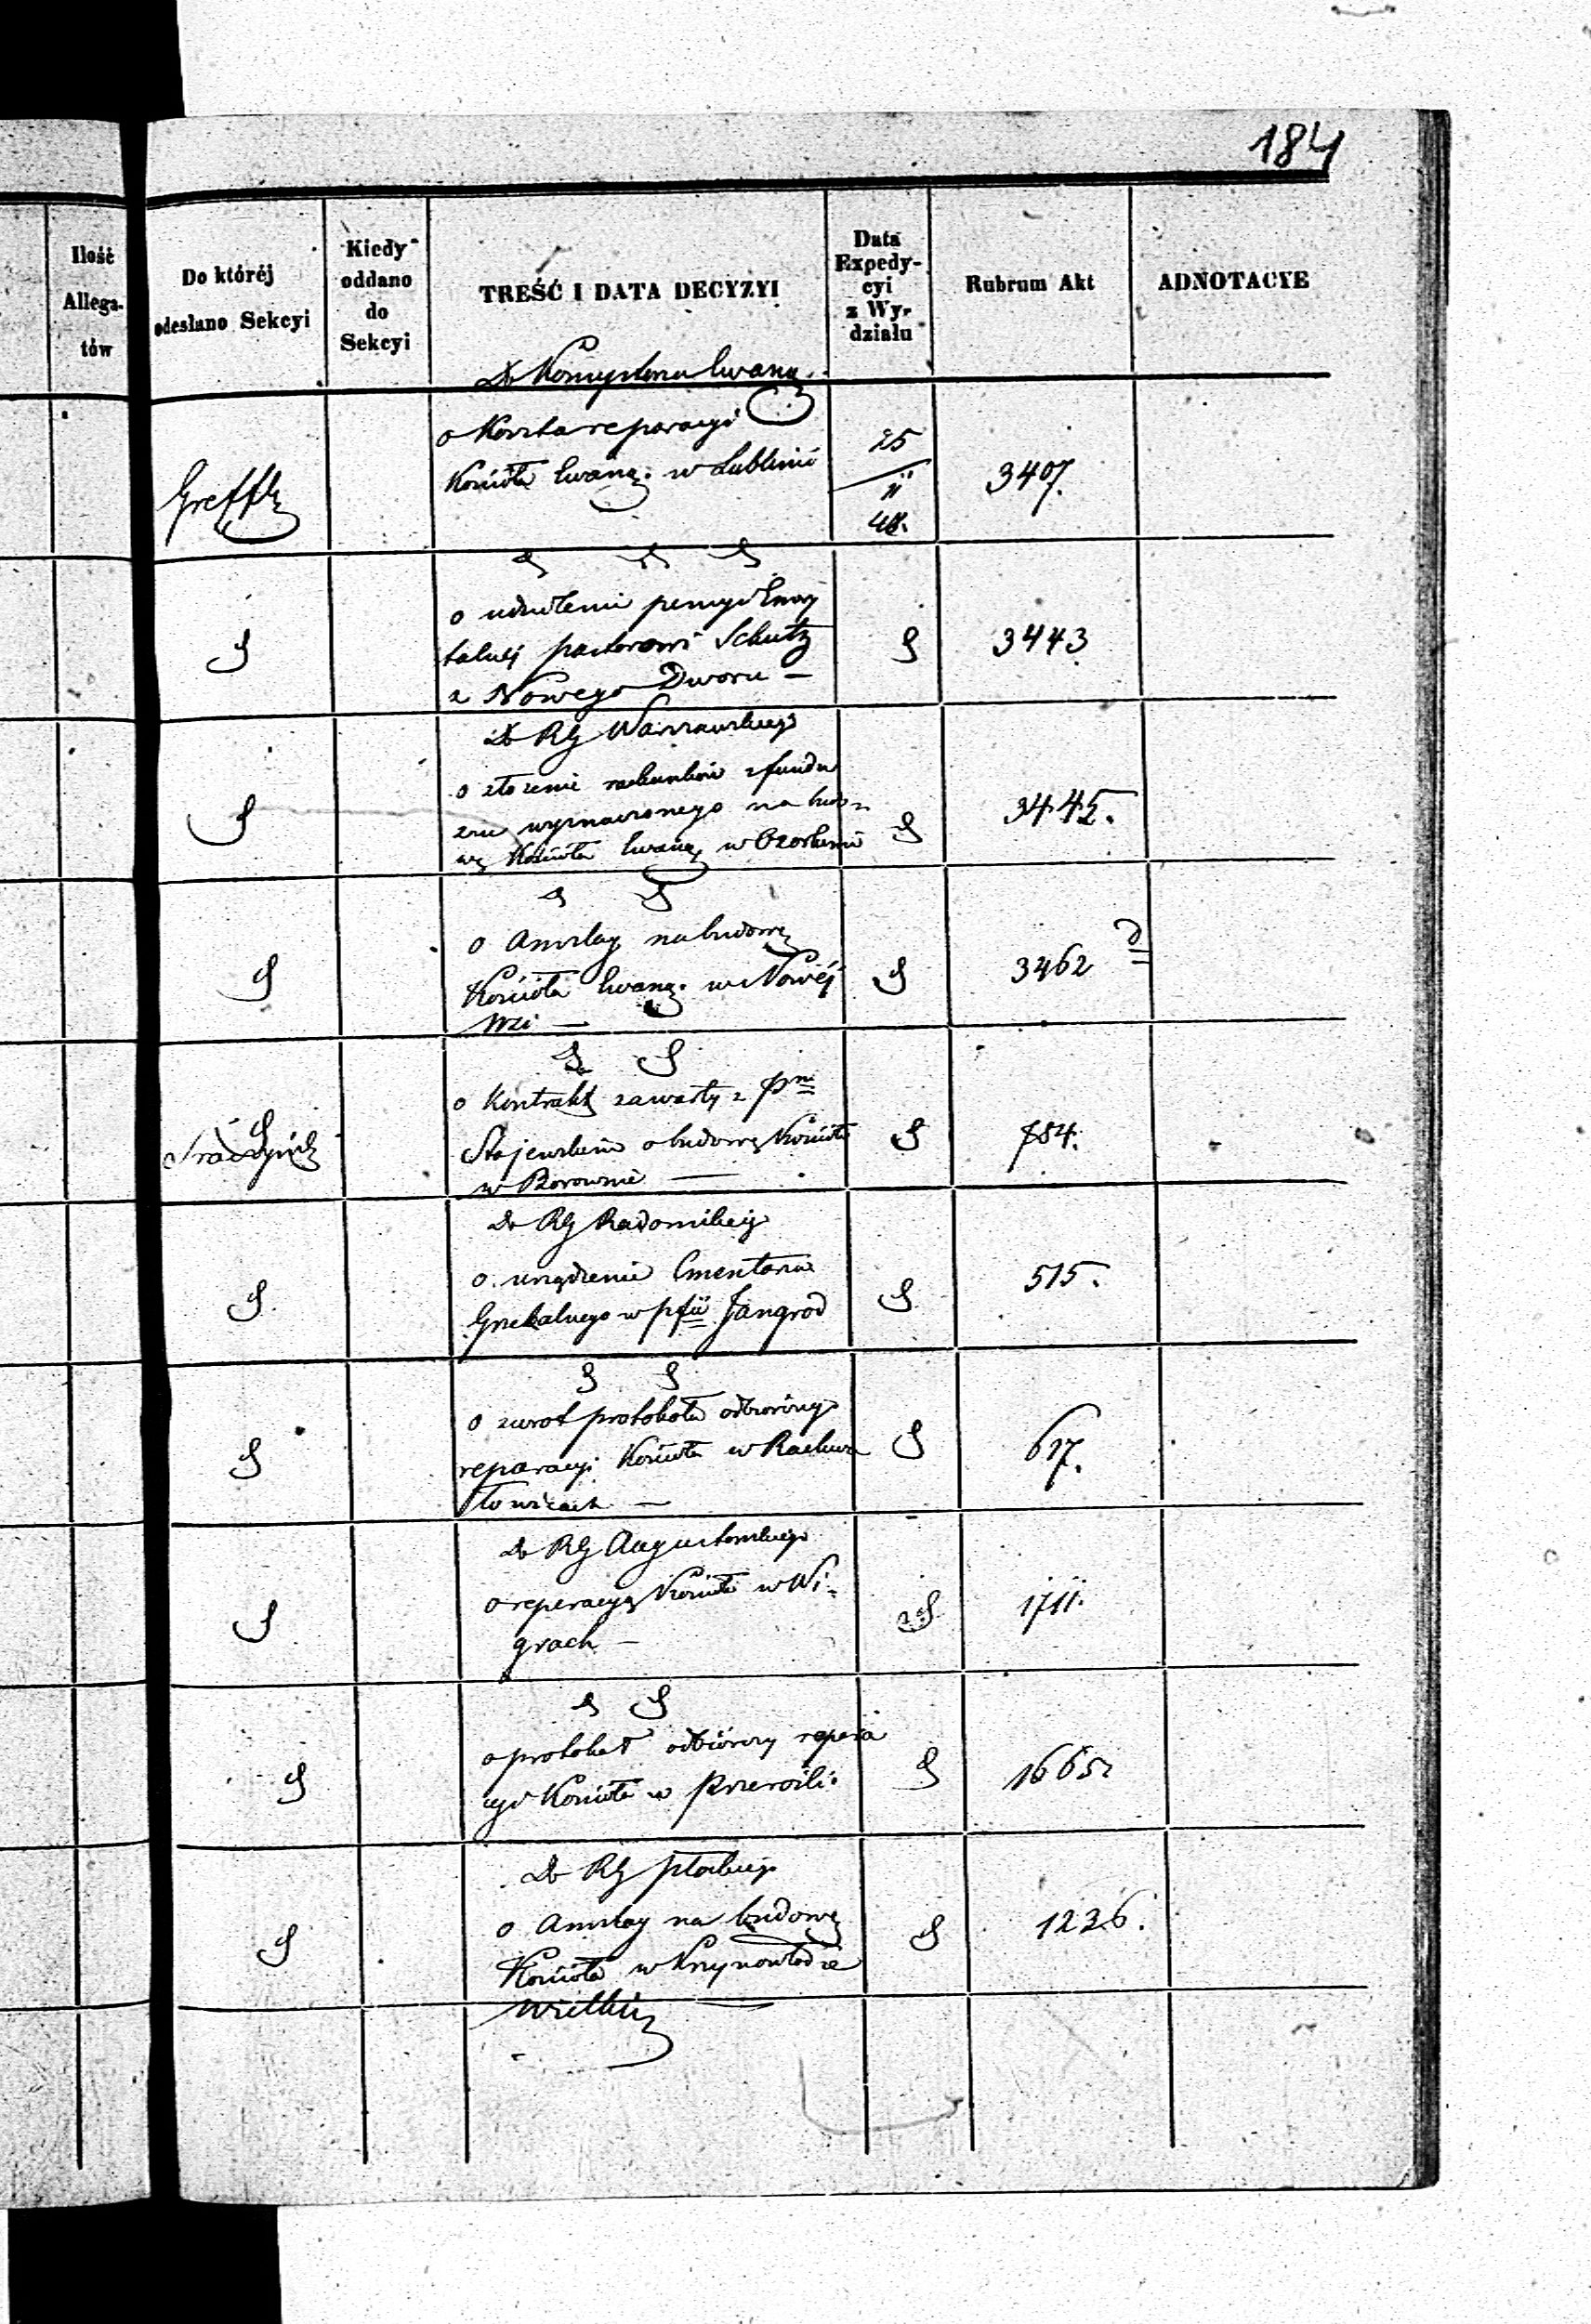 184
Ilość
Allega-
tów
Do któréj
odesłano Sekcyi
Kiedy
oddano
do
Sekcyi
TREŚĆ I DATA DECYZYI
Data
Expedy-
cyi
z Wy-
działu
Rubrum Akt
ADNOTACYE
Do Konsystorza Ewang.
o Koszta reparacyi
Kościoła Ewang. w Lublinie
25
11
48.
3407.
o udzielenie pensyi Emery
talnej pastorowi Schultz
z Nowego Dworu —
3443
Do RG Warszawskiego
o złożenie rachunków z fundu
szu wyznaczonego na budo=
wę Kościoła Ewang. w Ozorkowie
3445.
o Anszlag na budowę
Kościoła Ewang. w Nowéj
Wsi —
3462
d
o Kontrakt zawarty z Pnem
o budowę Kościoła
w Borownie —
784.
Do RG Radomskiego
o urządzenie Cmentarza
Grzebalnego w pfii Jangrod
515.
o zwrot protokołu odbiorczego
reparacyi Kościoła w Racławi
617.
Do RG Augustowskiego
o reperacyą Kościoła w Wi=
grach —
1711.
o protokół odbiorczy repera
cyi Kościoła w Przerośli.
1665
Do RG Płockiego
o Anszlag na budowę
Kościoła w Krzynowłodze
Wielkiej —
1236.